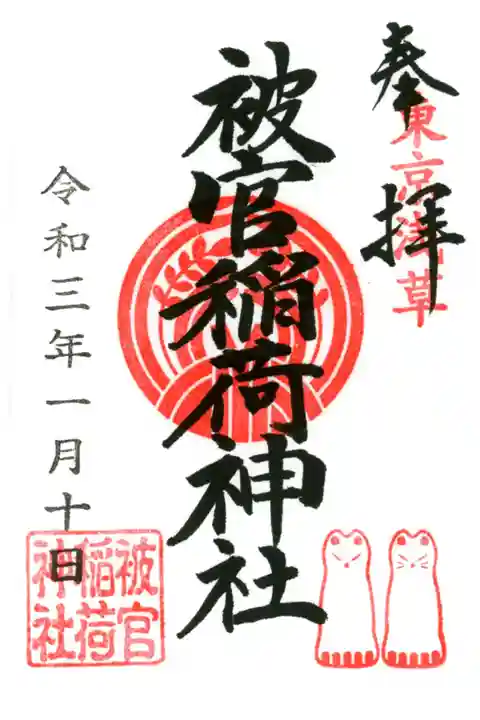 奉拝
東京浅草
被官稲荷神社
令和三年一月十日
被官
稲荷
神社